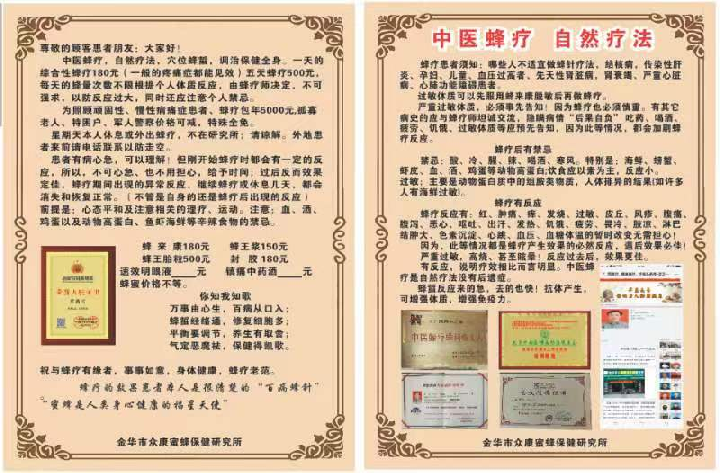 尊敬的顾客患者朋友：大家好！
中医蜂疗，自然疗法，穴位蜂蜇，调治保健全身。一天的
综合性蜂疗180元（一般的疼痛症都能见效）五天蜂疗500元，
每天的蜂量次数不限根据个人体质反应，由蜂疗师决定，不可
强求，以防反应过大，同时还应注意个人禁忌。
为照顾顽固性、慢性病痛症患者、蜂疗包年5000元，孤寡
老人、特困户、军人警察价格可减，特殊全免。
星期天本人休息或外出蜂疗，不在研究所；请谅解。外地患
者来前请电话联系以防走空。
患者有病心急，可以理解！但刚开始蜂疗时都会有一定的反
应，所以，不可心急、也不用担心，给予时间，过后反而效果
定佳。蜂疗期间出现的异常反应，继续蜂疗或休息几天，都会
消失和恢复正常。（不管是自身的还是蜂疗后出现的反应）
前提是：心态平和及注意相关的理疗、运动。注意：血、酒、
鸡蛋以及动物高蛋白、鱼虾海鲜等辛辣食物的禁忌。
蜂来康180元 蜂王浆150元
蜂王胎粒500元 封胶180元
速效明眼液____元 镇痛中药酒____元
蜂蜜价格不等。
你知我如歌
万事由心生，百病从口入；
蜂蜇经络通，修复细胞多；
平衡要调节，养生有取舍；
气定恶魔祛，保健得凯歌。
祝与蜂疗有缘者、事事如意，身体健康，蜂疗老范。
蜂疗的效甚患者本人是很清楚的“百病蜂针”
“蜜蜂是人类身心健康的福星天使”
金华市众康蜜蜂保健研究所
中医蜂疗 自然疗法
蜂疗患者须知：哪些人不适宜做蜂针疗法，经核病，传染性肝
炎、孕妇、儿童、血压过高者、先天性肾脏病，肾衰竭、严重心脏
病、心肺功能障碍患者。
过敏体质可以先服用蜂来康脱敏后再做蜂疗。
严重过敏体质，必须事先告知！因为蜂疗也必须慎重。有其它
病史的应与蜂疗师坦诚交流，隐瞒病情“后果自负”吃药、喝酒、
疲劳、饥饿、过敏体质等应预先告知，因为此等情况，都会加剧蜂
疗反应。
蜂疗后有禁忌
禁忌：酸、冷、腥、辣、喝酒、寒风。特别是；海鲜、螃蟹、
虾皮、血、酒、鸡蛋等动物高蛋白；饮食应以素为主，反应小。
过敏：主要是动物蛋白质中的组胺类物质，人体排异的结果（如许多
人有海鲜过敏）。
蜂疗有反应
蜂疗反应有：红、肿痛、痒、发烧、过敏、皮丘、风疹、腹痛、
腹泻、恶心、呕吐、出汗、发热、饥饿、疲劳、畏冷、脱凉、淋巴
结肿大、色素沉淀、心跳、血压、血糖体温的暂时改变无需担心！
因为，此等情况都是蜂疗产生效果的必然反应，适后效果必佳！
严重过敏，高烧、甚至眩晕！反应过去后，效果更佳。
有反应，说明疗效相比而言明显。中医蜂
疗是自然疗法没有后遗症。
蜂蜇反应来的急，去的也快！抗体产生，
可增强体质、增强免疫力。
金华市众康蜜蜂保健研究所